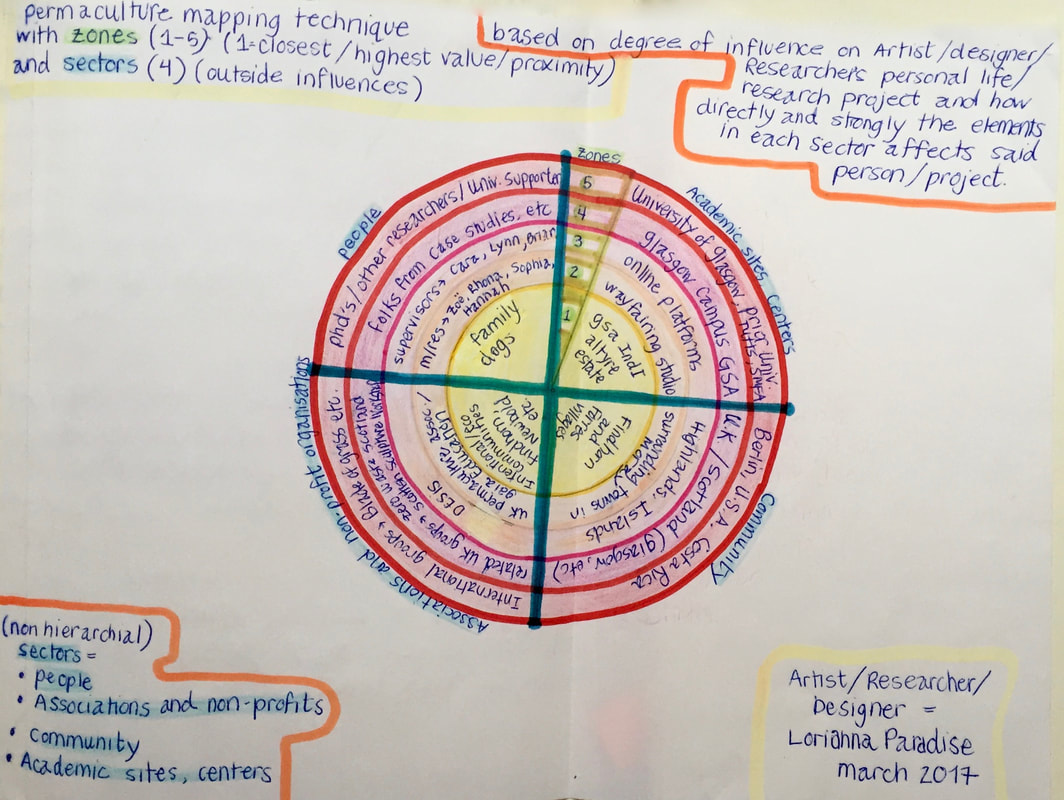 permaculture mapping technique
with zones (1-5) (1=closest/highest value/proximity)
and sectors (4) (outside influences)
based on degree of influence on Artist/designer/
Researchers personal life/
research project and how
directly and strongly the elements
in each sector affects said
person/project.
zones
5
4
3
2
1
people
phd's/other researchers/univ. supporter
folks from case studies, etc
supervisors→ Cara, Lynn, Brian
mlres→ Zoë, Rhona, Sophia,
Hannah
family
dogs
Academic sites, centers
University of glasgow, prior univ.
tufts, SMFA
glasgow campus GSA
online platforms
wayfairing studio
gsa IndI
altyre
estate
Community
Berlin, U.S.A. Costa Rica
U.K / Scotland (glasgow, etc)
Highlands, Islands
surrounding towns in
Moray
Findhorn
and
Forres
villages
Associations and non-profit organisations
International groups→ Blade of grass etc.
related UK groups→ zero waste scotland
scottish sculpture workshop
DESIS
uk permaculture assoc./
gaia Education
Intentional/Eco
communities
findhorn
Newbold
etc.
(non hierarchial)
sectors =
• people
• Associations and non-profits
• community
• Academic sites, centers
Artist/Researcher/
Designer =
Lorianna Paradise
march 2017